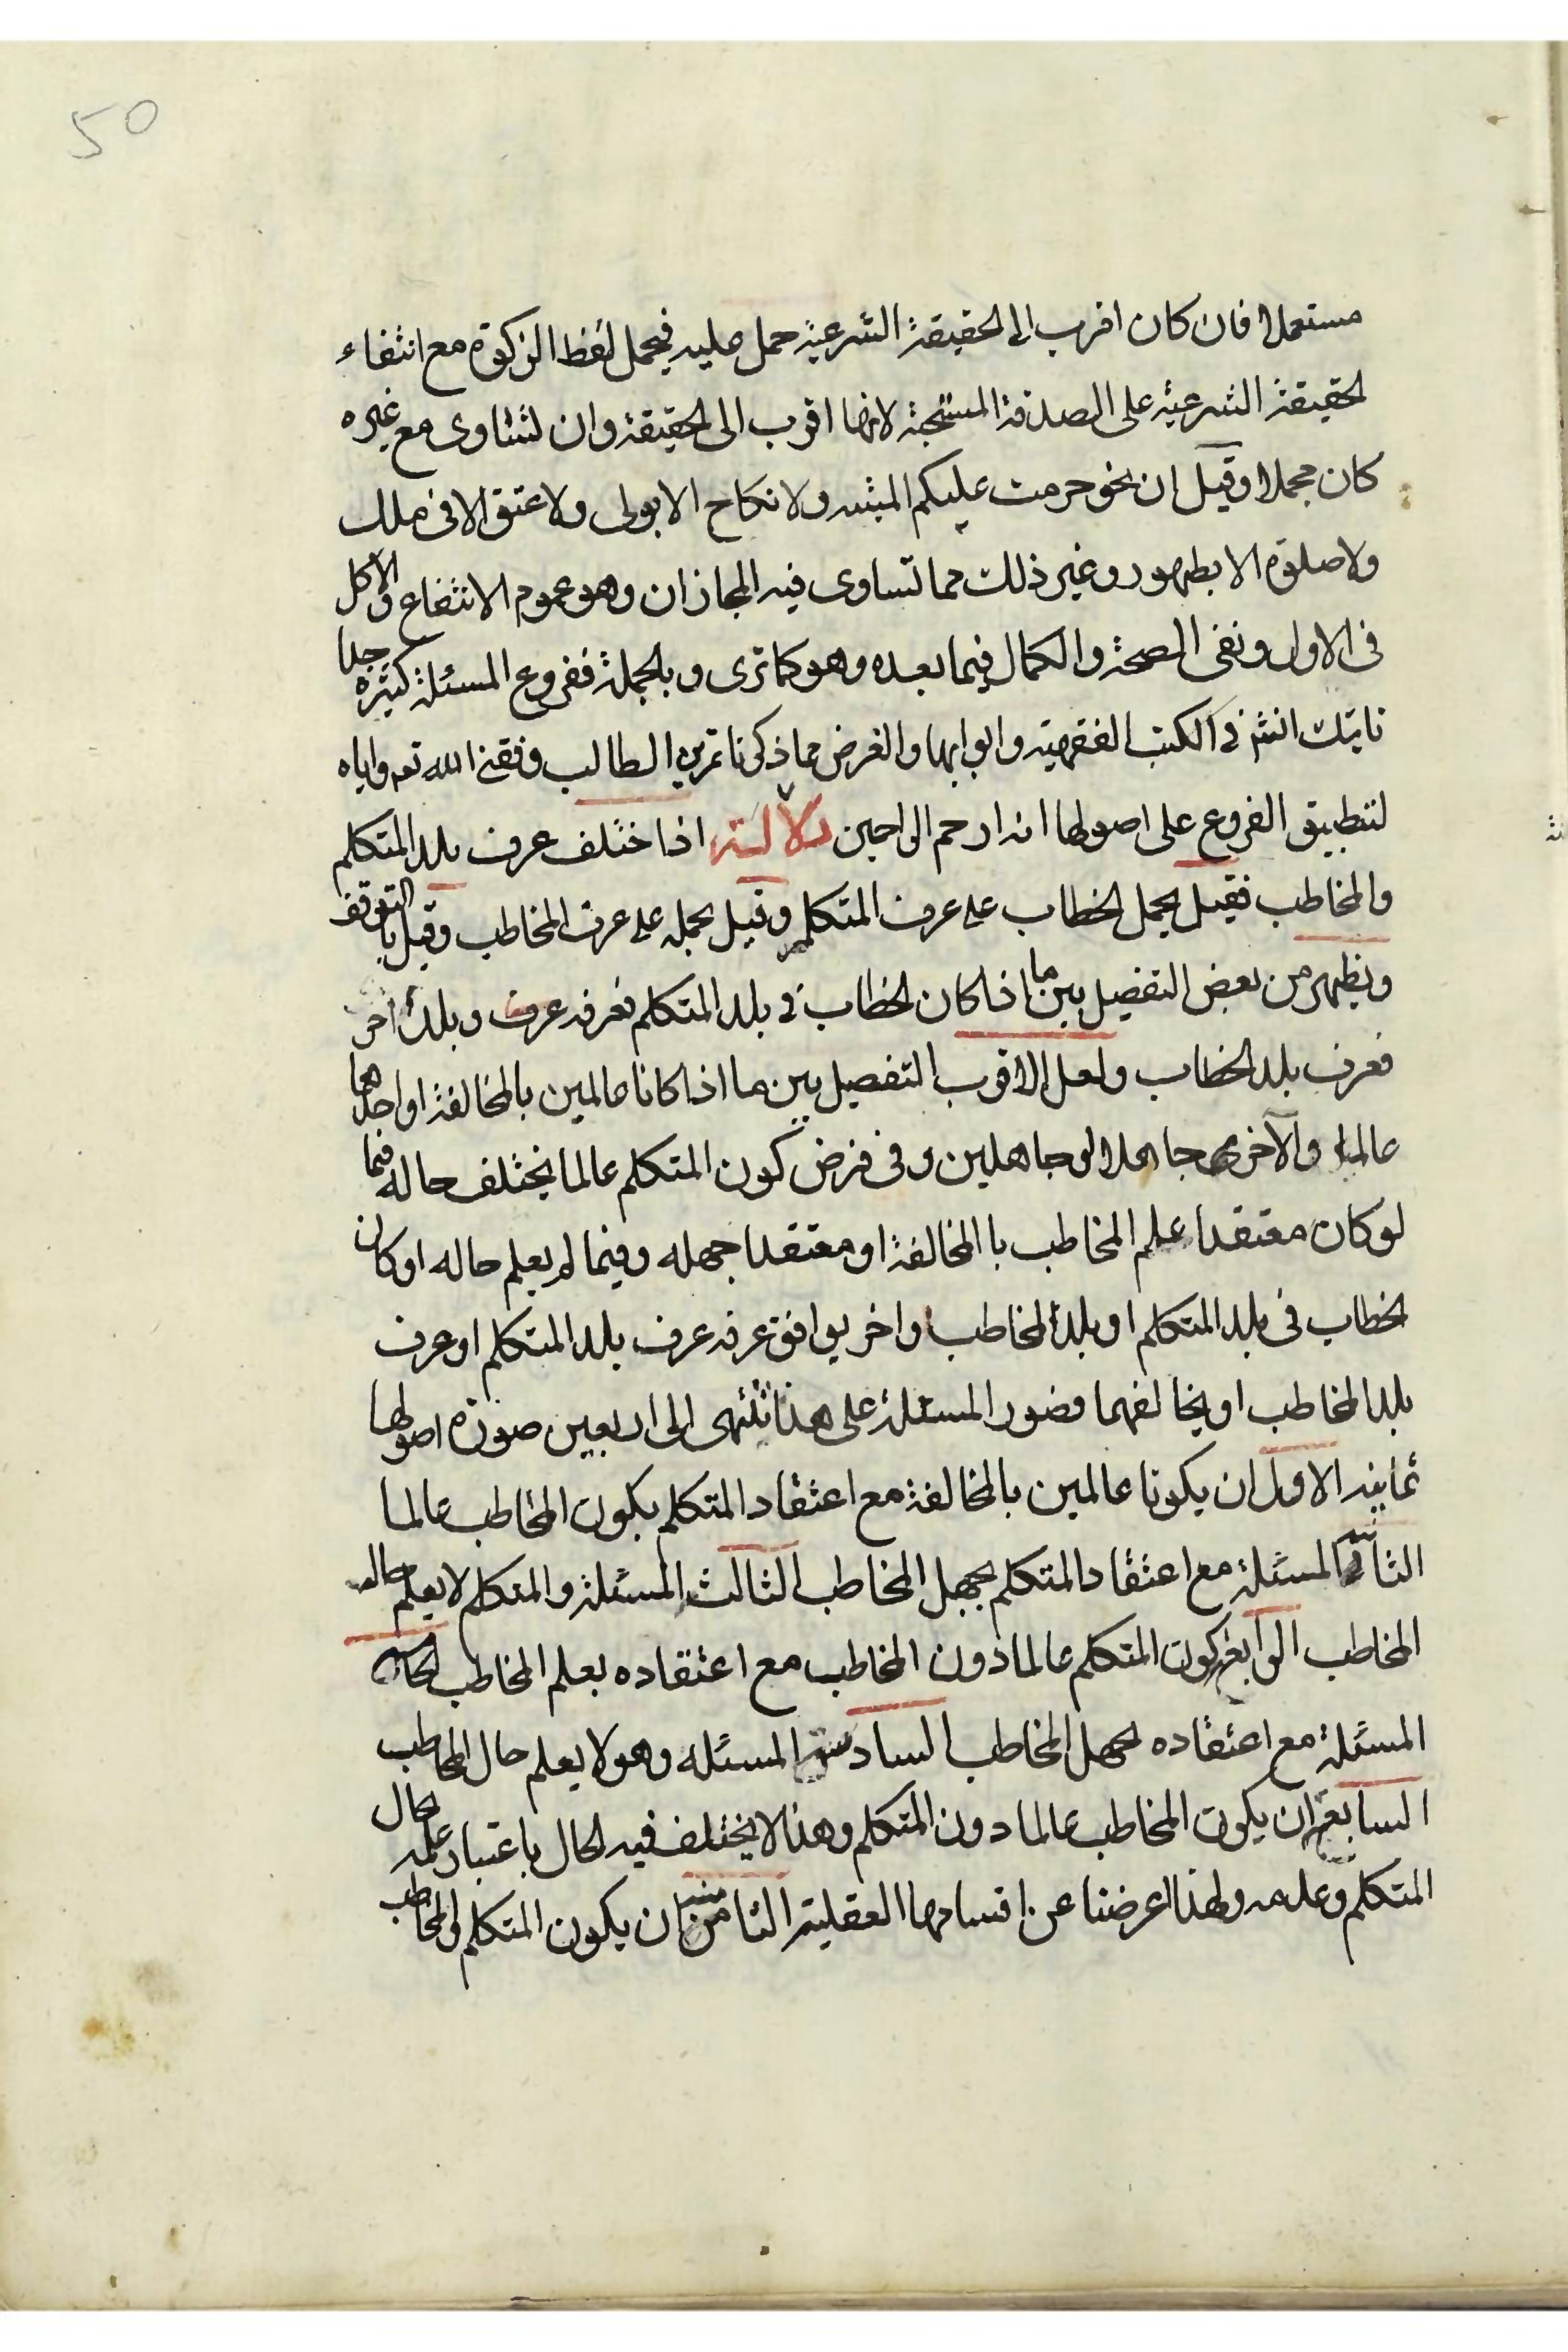 50
مستعملا فان كان اقرب الى الحقيقة الشرعية حمل عليه فيحمل لفظ الزكوة مع انتفاء
الحقيقة الشرعية على الصدقة المستحبة لانها اقرب الى الحقيقة وان تساوى مع غيره
كان مجملا وقيل ان نحو حرمت عليكم الميته ولا نكاح الا بولى ولا عتق الا فى ملك
ولا صلوة الا بطهور وغير ذلك مما تساوى فيه المجازان وهو عموم الانتفاع والاكل
فى الاول ونفى الصحة والكمال فيما بعده وهو كما ترى وبالجملة ففروع المسئلة كثيرة جدا
فى الكتب الفقهية وابوابها والغرض مما ذكرنا تمرين الطالب وفقنى الله تعم واياه
لتطبيق الفروع على اصولها انه ارحم الراحمين دلالة اذا ختلف عرف بلد المتكلم
والمخاطب فقيل يحمل الخطاب على عرف المتكلم وقيل يحمله على عرف المخاطب وقيل بالتوقف
ويظهر من بعض التفصيل بين ما اذا كان الخطاب فى بلد المتكلم فعرفه عرف وبلد اخر
فعرف بلد الخطاب ولعل الاقرب التفصيل بين ما اذا كانا عالمين بالمخالفة او احدهما
عالما والآخر جاهلا او جاهلين وفى فرض كون المتكلم عالما يختلف حاله فيما
لو كان معتقدا علم المخاطب با المخالفة او معتقدا جهله وفيما لم يعلم حاله او كان
الخطاب فى بلد المتكلم او بلد المخاطب او اخر يوافق عرفه عرف بلد المتكلم او عرف
بلد المخاطب او يخالفهما فصور المسئلة على هذا تنتهى الى اربعين صورة اصولها
ثمانية الاول ان يكونا عالمين بالمخالفة مع اعتقاد المتكلم بكون المخاطب عالما
الثانية المسئلة مع اعتقاد المتكلم بجهل المخاطب الثالث المسئلة والمتكلم لا يعلم حاله
المخاطب الرابعة كون المتكلم عالما دون المخاطب مع اعتقاده بعلم المخاطب الخامسة
المسئلة مع اعتقاده بجهل المخاطب السادسة المسئله وهو لا يعلم حال المخاطب
السابعة ان يكون المخاطب عالما دون المتكلم وهذا لا يختلف فيه الحال باعتبار علمه بحال
المتكلم وعدمه ولهذا اعرضنا عن اقسامها العقلية الثامنة ان يكون المتكلم والمخاطب